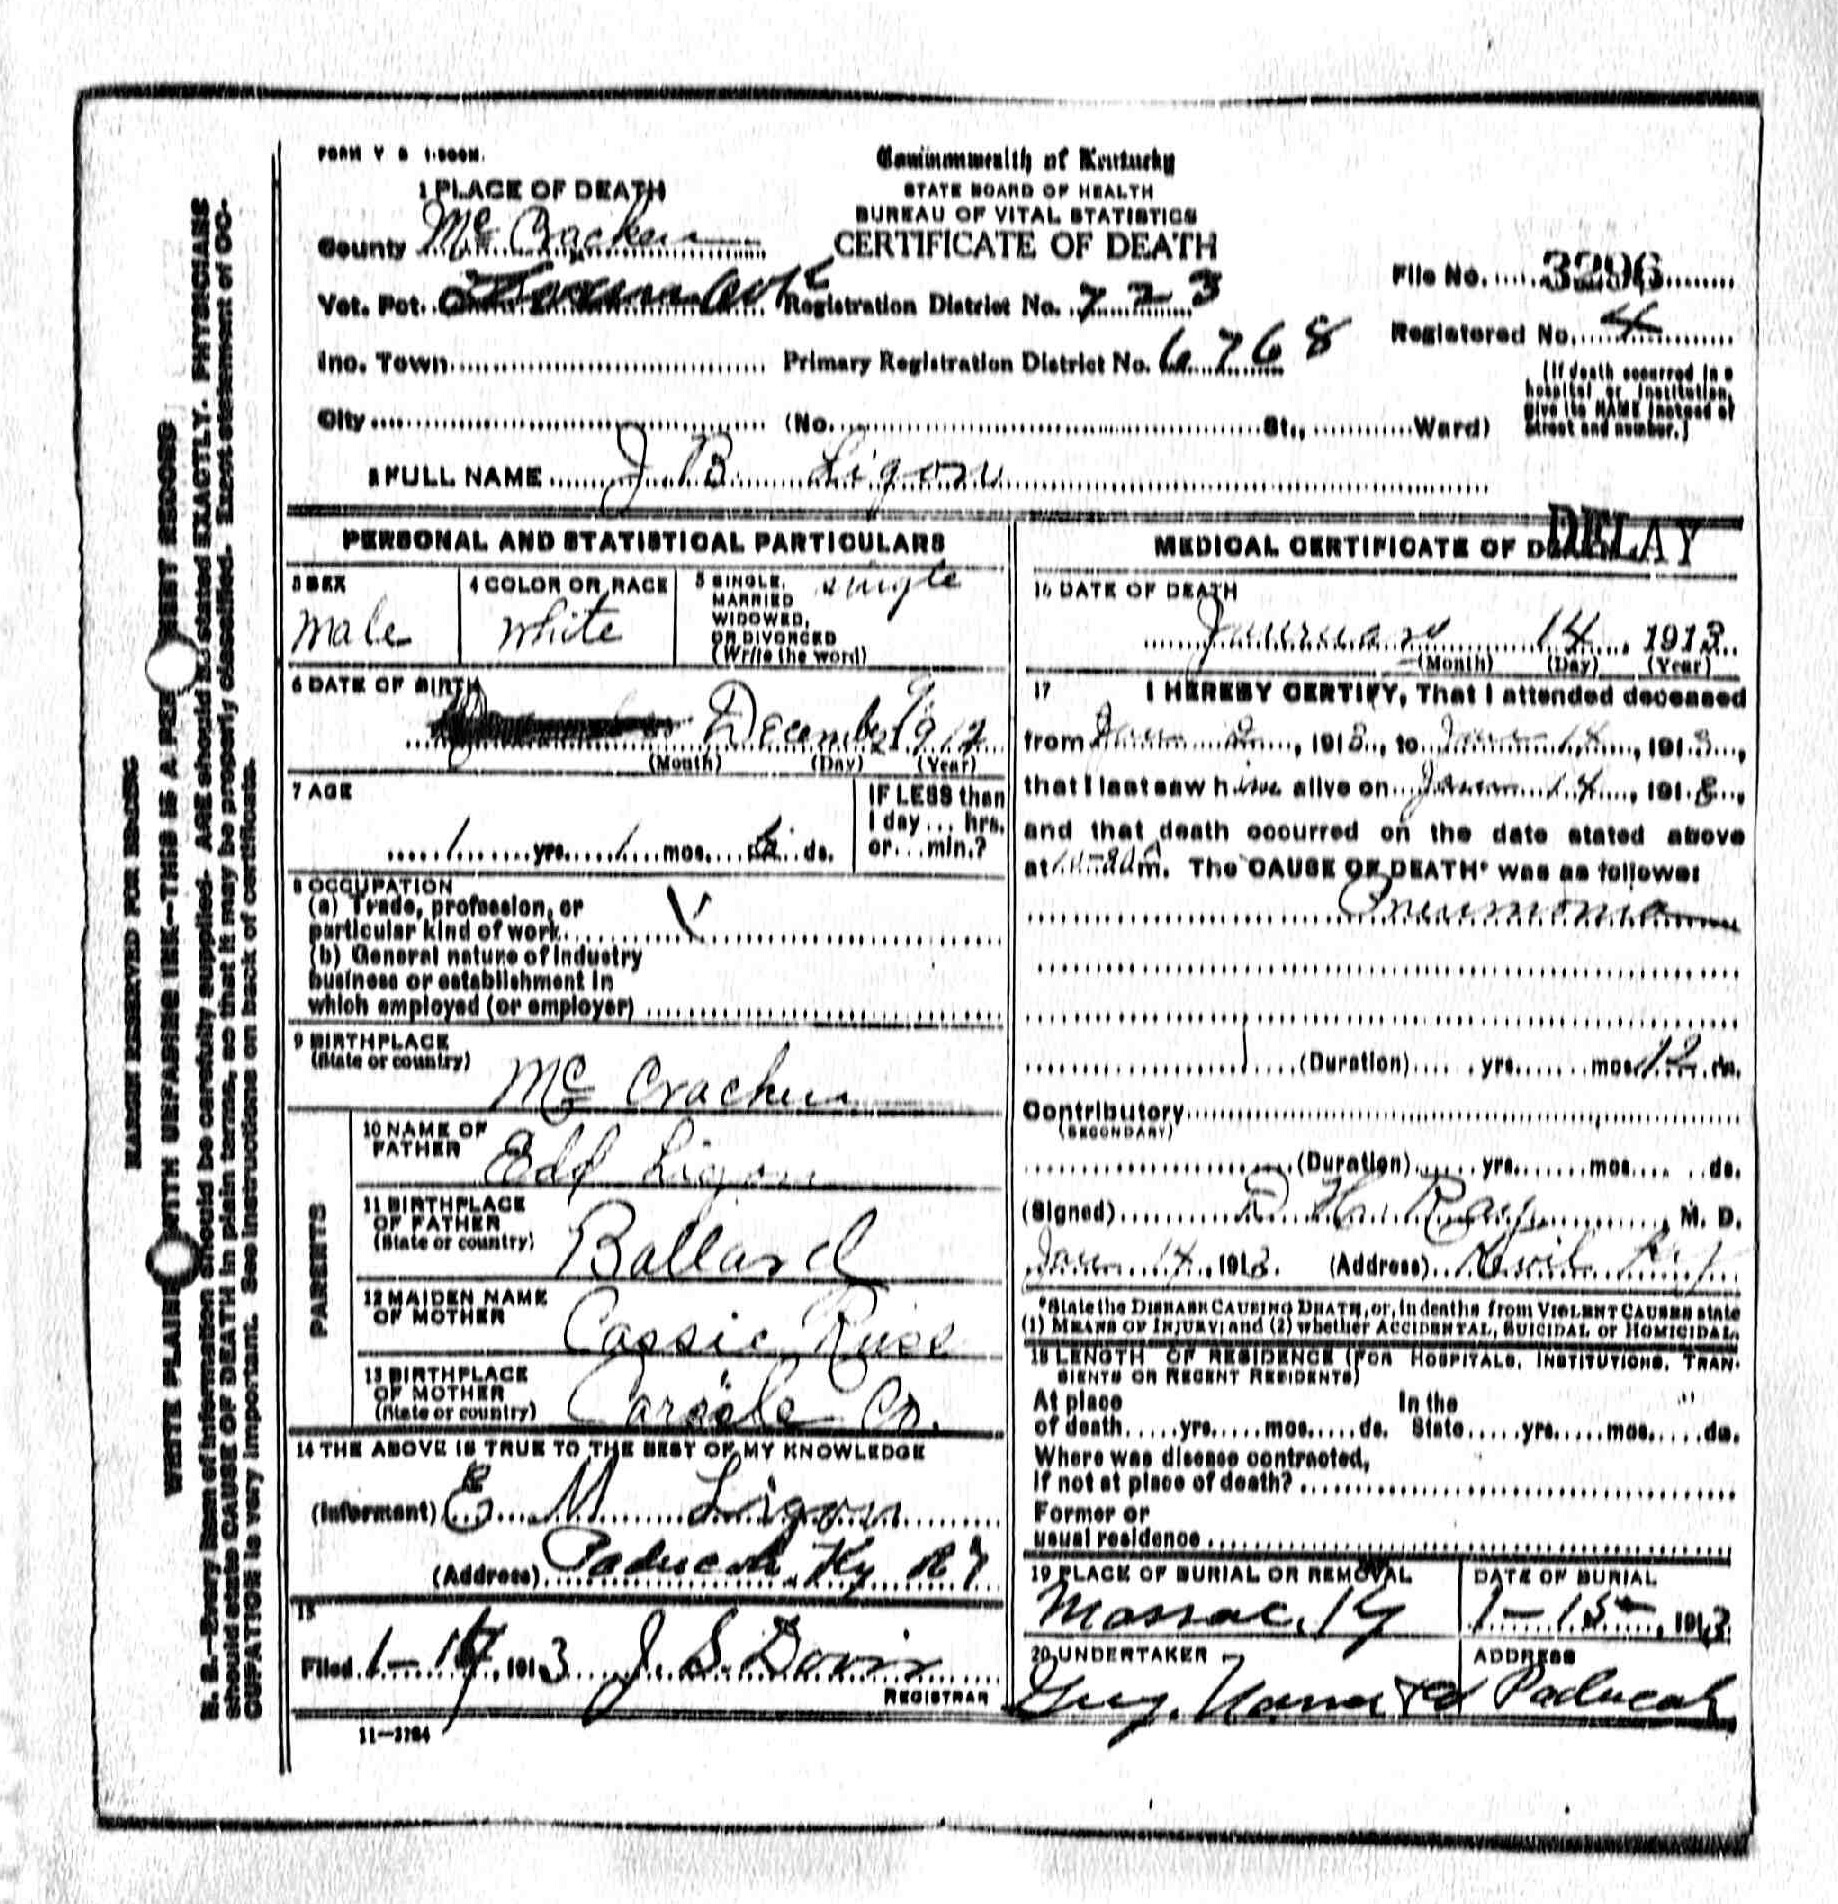 FORM V S 1-500M.
Commonwealth of Kentucky
1 PLACE OF DEATH
STATE BOARD OF HEALTH
BUREAU OF VITAL STATISTICS
County Mc Cracken
CERTIFICATE OF DEATH
File No. 3296
Vot. Pct. Registration District No. 723
Registered No. 4
Inc. Town Primary Registration District No. 6768
(If death occurred in a
hospital or institution,
give its NAME instead of
street and number.)
City (No. St., Ward)
2 FULL NAME J B Ligon
DELAY
PERSONAL AND STATISTICAL PARTICULARS
3 SEX
Male
4 COLOR OR RACE
White
5 SINGLE,
MARRIED
WIDOWED,
OR DIVORCED
(Write the word)
single
6 DATE OF BIRTH
December 9 1912
(Month) (Day) (Year)
7 AGE
1 yrs. 1 mos. ds.
IF LESS than
1 day... hrs.
or...min.?
8 OCCUPATION
(a) Trade, profession, or
particular kind of work
(b) General nature of industry
business or establishment in
which employed (or employer)
9 BIRTHPLACE
(State or country)
Mc Cracken
PARENTS
10 NAME OF
FATHER
Edd Ligon
11 BIRTHPLACE
OF FATHER
(State or country)
Ballard
12 MAIDEN NAME
OF MOTHER
Cassie
13 BIRTHPLACE
OF MOTHER
(State or country)
Co.
14 THE ABOVE IS TRUE TO THE BEST OF MY KNOWLEDGE
(Informant) E. M. Ligon
(Address) Paducah, Ky R 7
15
Filed 1- , 1913 J S Davis
REGISTRAR
11-3784
MEDICAL CERTIFICATE OF DEATH
16 DATE OF DEATH
January 14, 1913
(Month) (Day) (Year)
17 I HEREBY CERTIFY, That I attended deceased
from Jan 2, 1913, to Jan 14, 1913,
that I last saw him alive on Jan 14, 1913,
and that death occurred on the date stated above
at m. The CAUSE OF DEATH* was as follows:
Pneumonia
(Duration) yrs. mos. 12 ds.
Contributory
(SECONDARY)
(Duration) yrs. mos. ds.
(Signed) D. H. Ray, M. D.
Jan 14, 1913. (Address) Kevil Ky
*State the DISEASE CAUSING DEATH, or, in deaths from VIOLENT CAUSES state
(1) MEANS OF INJURY; and (2) whether ACCIDENTAL, SUICIDAL or HOMICIDAL.
18 LENGTH OF RESIDENCE (FOR HOSPITALS, INSTITUTIONS, TRAN-
SIENTS OR RECENT RESIDENTS)
At place In the
of death yrs. mos. ds. State yrs. mos. ds.
Where was disease contracted,
If not at place of death?
Former or
usual residence
19 PLACE OF BURIAL OR REMOVAL
Massac, Ky
DATE OF BURIAL
1-15-, 1913
20 UNDERTAKER
ADDRESS
Paducah
MARGIN RESERVED FOR BINDING
WRITE PLAINLY WITH UNFADING INK—THIS IS A PERMANENT RECORD
N. B.—Every item of information should be carefully supplied. AGE should be stated EXACTLY. PHYSICIANS
should state CAUSE OF DEATH in plain terms, so that it may be properly classified. Exact statement of OC-
CUPATION is very important. See instructions on back of certificate.